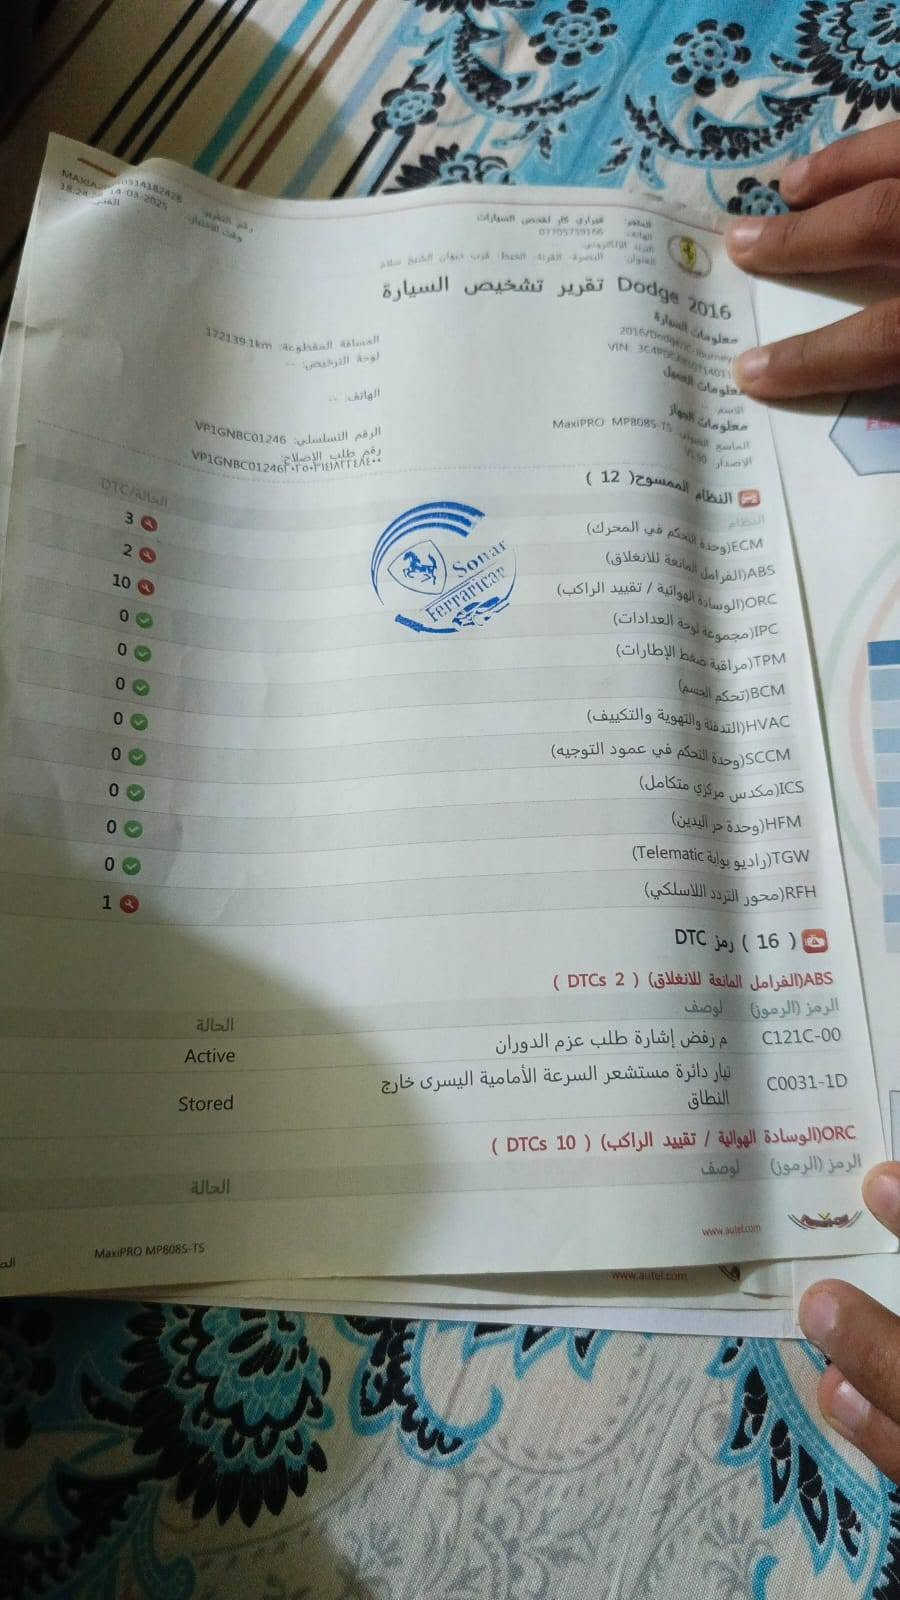 المتجر: فيراري كار لفحص السيارات
الهاتف: 07705759166
البريد الإلكتروني:
العنوان: البصرة- القرنة- الخط- قرب ديوان الشيخ سلام
رقم التقرير:
وقت الاختبار: 14-03-2025
Dodge 2016 تقرير تشخيص السيارة
معلومات السيارة
2016/Dodge/JC-Journey/
VIN:
المسافة المقطوعة: 172139.1km
لوحة الترخيص: --
معلومات العميل
الاسم: --
الهاتف: --
معلومات الجهاز
MaxiPRO MP808S-TS
الرقم التسلسلي: VP1GNBC01246
الإصدار
رقم طلب الإصلاح:
النظام الممسوح( 12 )
النظام
الحالة/DTC
ECM(وحدة التحكم في المحرك) 3
ABS(الفرامل المانعة للانغلاق) 2
ORC(الوسادة الهوائية / تقييد الراكب) 10
IPC(مجموعة لوحة العدادات) 0
TPM(مراقبة ضغط الإطارات) 0
BCM(تحكم الجسم) 0
HVAC(التدفئة والتهوية والتكييف) 0
SCCM(وحدة التحكم في عمود التوجيه) 0
ICS(مكدس مركزي متكامل) 0
HFM(وحدة حر اليدين) 0
TGW(راديو بوابة Telematic) 0
RFH(محور التردد اللاسلكي) 1
Sonar
Ferraricar
رمز DTC ( 16 )
ABS(الفرامل المانعة للانغلاق) ( DTCs 2 )
الرمز (الرموز) لوصف الحالة
C121C-00 م رفض إشارة طلب عزم الدوران Active
C0031-1D تيار دائرة مستشعر السرعة الأمامية اليسرى خارج النطاق Stored
ORC(الوسادة الهوائية / تقييد الراكب) ( DTCs 10 )
الرمز (الرموز) لوصف الحالة
www.autel.com
MaxiPRO MP808S-TS
www.autel.com